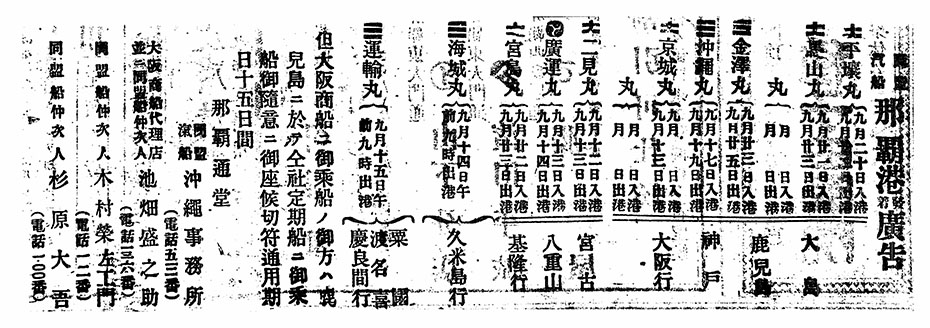 同盟汽船
那覇港発着廣告
平壤丸 九月二十日入港
大島
嘉山丸 九月廿一日入港 九月廿三日出港
丸 月 日入港 月 日出港
鹿兒島
金澤丸 九月廿三日入港 九月廿五日出港
沖繩丸 九月十七日入港 九月十九日出港
神戸
京城丸 九月 日入港 九月十三日出港
大阪行
丸 月 日入港 月 日出港
二見丸 九月十二日入港 九月十三日出港
宮古
廣運丸 九月十三日入港 九月十四日出港
八重山
宮島丸 九月廿二日入港 九月廿三日出港
基隆行
海城丸 九月十四日午前九時出港
久米島行
運輸丸 九月十五日午前九時出港
粟國
渡名喜
慶良間行
但大阪商船ニ御乘船ノ御方ハ鹿
兒島ニ於テ仝社定期船ニ御乘
船御隨意ニ御座候切符通用期
日十五日間
那覇通堂
同盟汽船 沖繩事務所
(電話五三番)
大阪商船代理店
並ニ同盟船仲次人 池畑盛之助
(電話三六番)
同盟船仲次人 木村榮左工門
(電話一二番)
同盟船仲次人 杉原大吾
(電話一〇〇番)